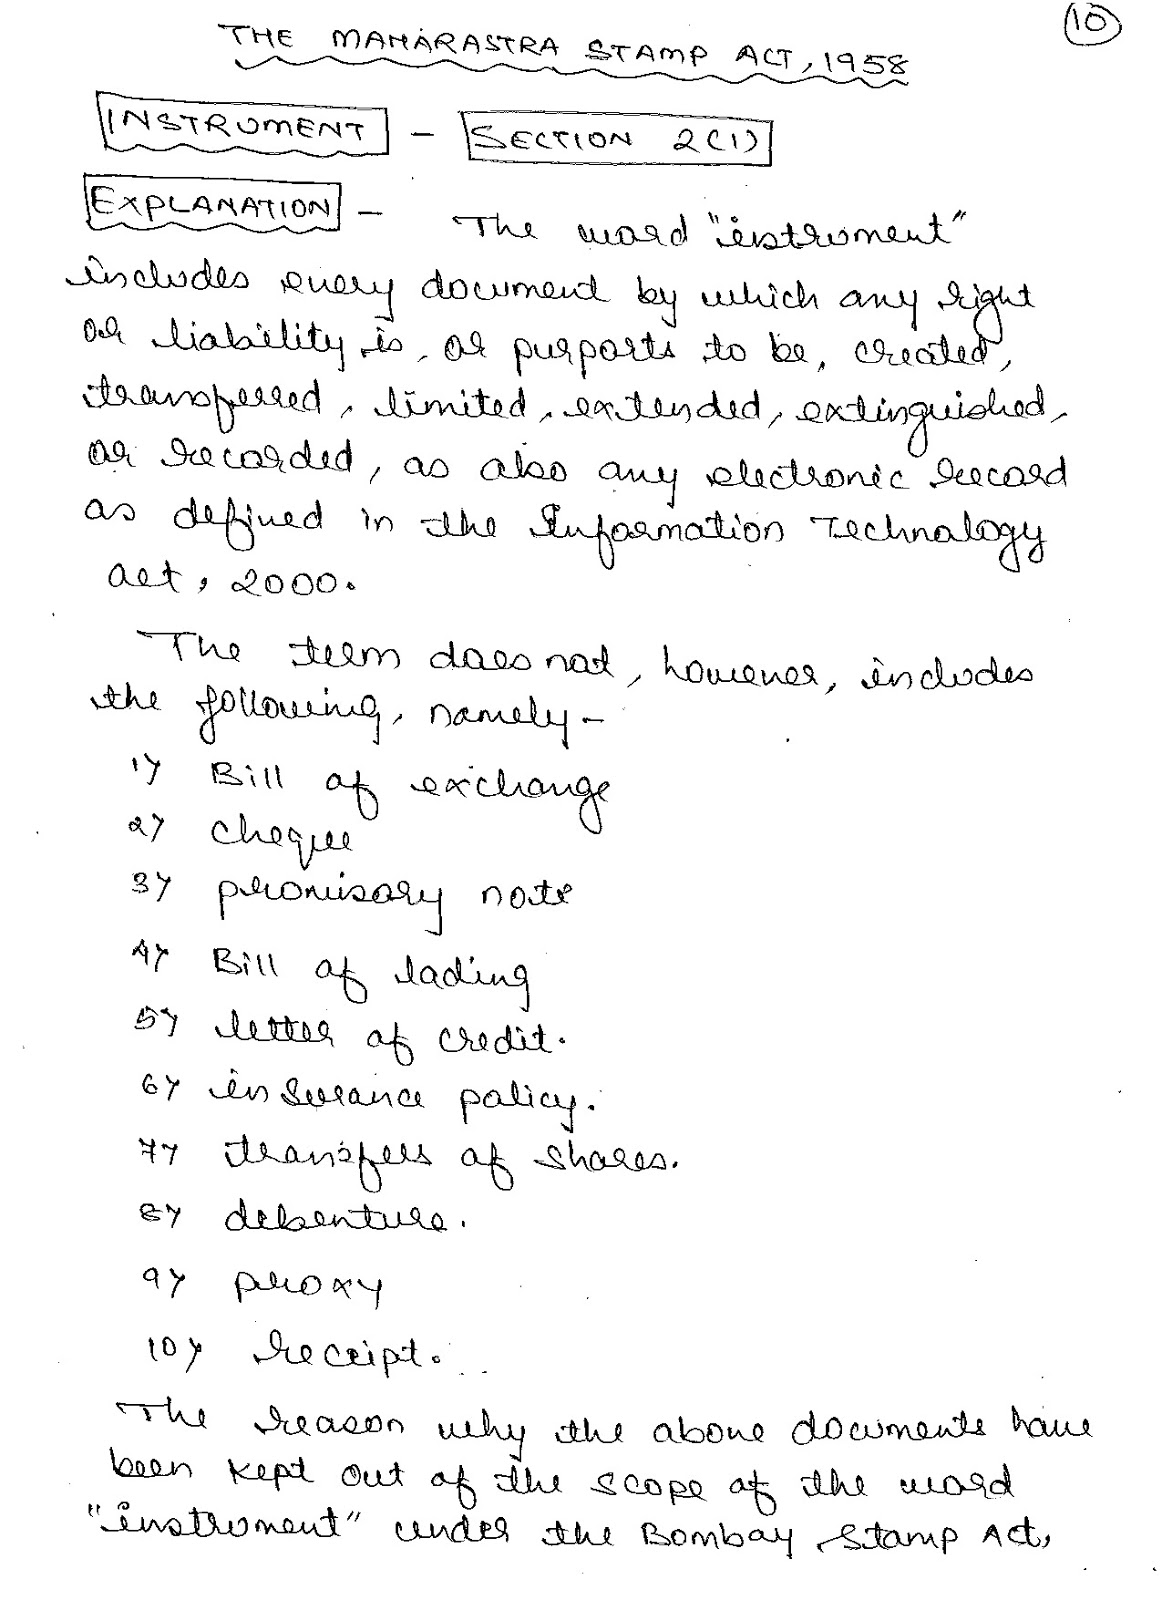 10
THE MAHARASTRA STAMP ACT, 1958
INSTRUMENT - SECTION 2(1)
EXPLANATION - The word "instrument"
includes every document by which any right
or liability is, or purports to be, created,
transferred, limited, extended, extinguished,
or recorded, as also any electronic record
as defined in the Information Technology
act, 2000.
The term does not, however, includes
the following, namely -
1) Bill of exchange
2) cheque
3) promisary note
4) Bill of lading
5) letter of credit.
6) insurance policy.
7) transfers of shares.
8) debenture.
9) proxy
10) receipt.
The reason why the above documents have
been kept out of the scope of the word
"instrument" under the Bombay Stamp Act,